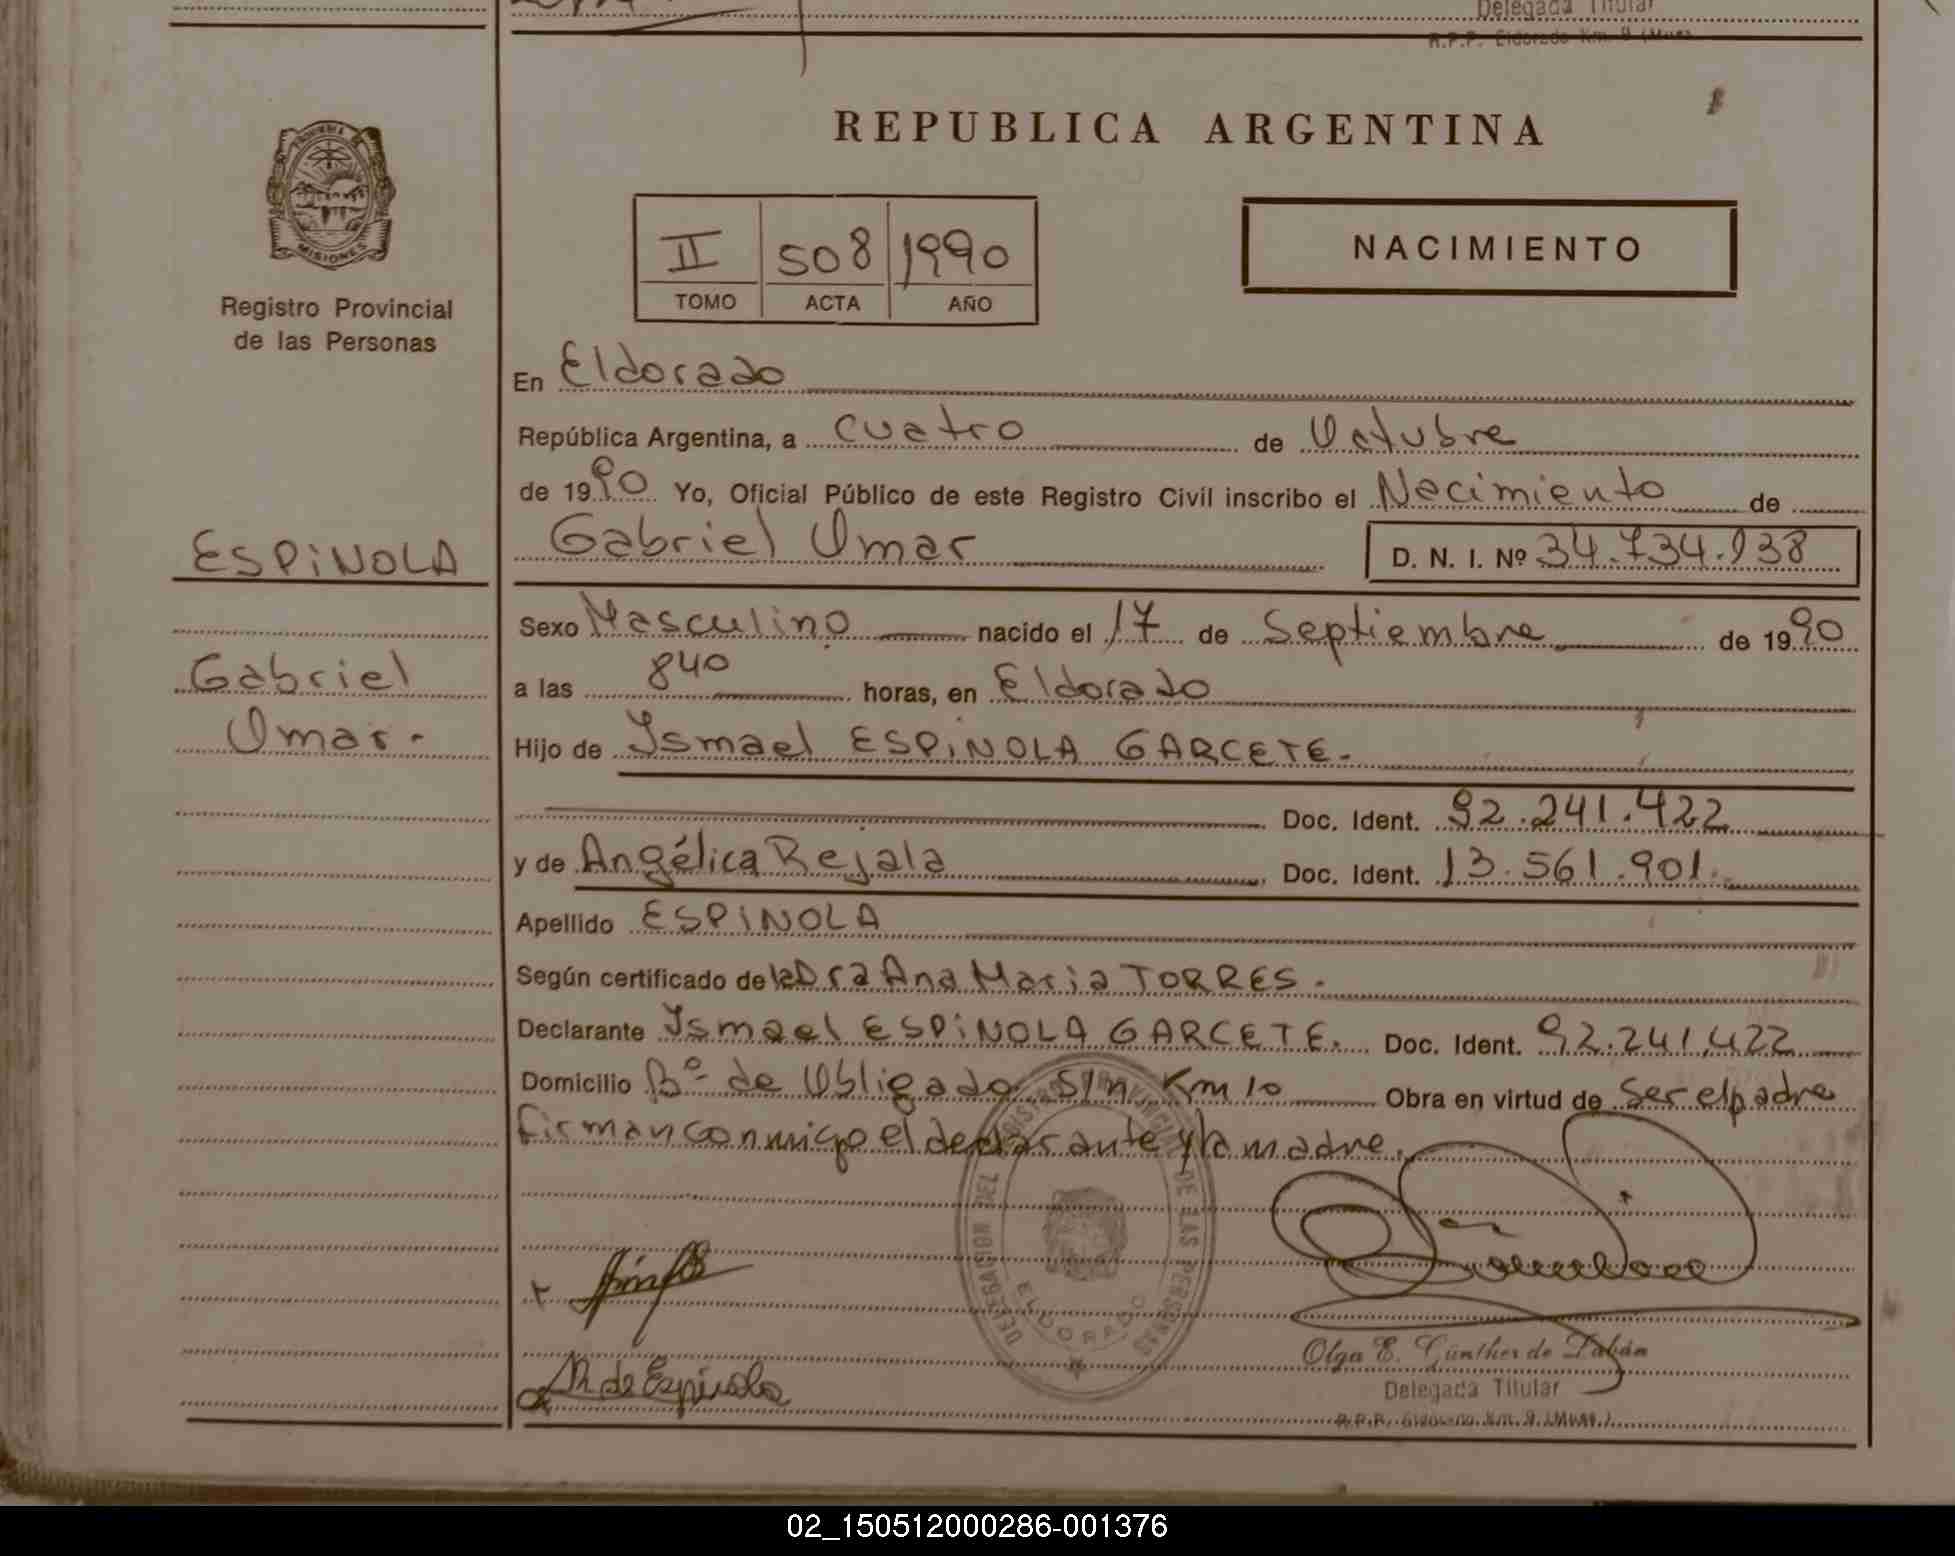 Delegada Titular
R.P.P. Eldorado Km. 9 (Mnes.
REPUBLICA ARGENTINA
PROVINCIA DE MISIONES
Registro Provincial
de las Personas
II 508 1990
TOMO ACTA AÑO
NACIMIENTO
En Eldorado
República Argentina, a cuatro de Octubre
de 1990 Yo, Oficial Público de este Registro Civil inscribo el Nacimiento de
ESPINOLA
Gabriel Omar D. N. I. Nº 34.734.938
Sexo Masculino nacido el 17 de Septiembre de 1990
Gabriel
a las 840 horas, en Eldorado
Omar.-
Hijo de Ismael ESPINOLA GARCETE.-
Doc. Ident. 92.241.422
y de Angélica Rejala Doc. Ident. 13.561.901.-
Apellido ESPINOLA
Según certificado de la Dra Ana Maria TORRES.-
Declarante Ismael ESPINOLA GARCETE. Doc. Ident. 92.241.422
Domicilio Bº de Obligado S/n Km 10 Obra en virtud de ser el padre
firman conmigo el declarante y la madre.
DELEGACION DEL REGISTRO PROVINCIAL DE LAS PERSONAS
ELDORADO
R. de Espinola
Olga E. Günther de Fabán
Delegada Titular
R.P.P. Eldorado Km. 9 (Mnes.)
02_150512000286-001376